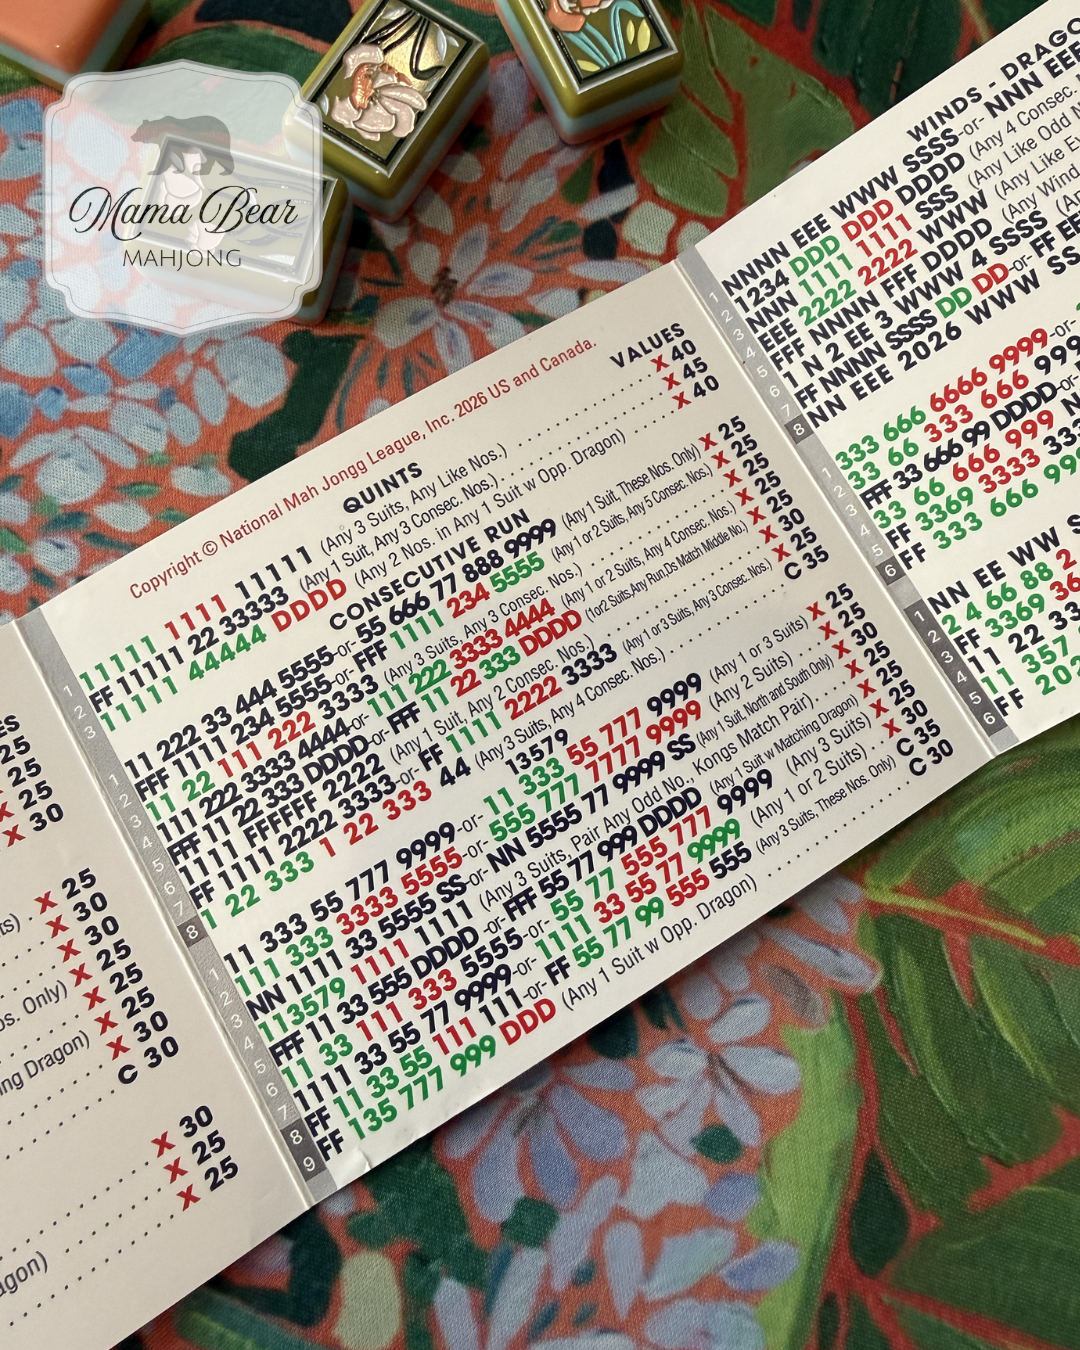 Mama Bear
MAHJONG
25
25
X 25
X 30
X 25
X 30
X 30
Only) X 25
X 25
Dragon) X 25
X 30
C 30
X 30
X 25
X 25
Copyright © National Mah Jongg League, Inc. 2026 US and Canada.
VALUES
QUINTS
1 11111 1111 11111 (Any 3 Suits, Any Like Nos.) X 40
2 FF 11111 22 33333 (Any 1 Suit, Any 3 Consec. Nos.) X 45
3 11111 44444 DDDD (Any 2 Nos. in Any 1 Suit w Opp. Dragon) X 40
CONSECUTIVE RUN
1 11 222 33 444 5555-or-55 666 77 888 9999 (Any 1 Suit, These Nos. Only) X 25
2 FFF 1111 234 5555-or-FFF 1111 234 5555 (Any 1 or 2 Suits, Any 5 Consec. Nos.) X 25
3 11 22 111 222 3333 (Any 3 Suits, Any 3 Consec. Nos.) X 25
4 111 222 3333 4444-or-111 222 3333 4444 (Any 1 or 2 Suits, Any 4 Consec. Nos.) X 25
5 FFF 11 22 333 DDDD-or-FFF 11 22 333 DDDD (1or2 Suits,Any Run,Ds Match Middle No.) X 25
6 1111 FFFFFF 2222 (Any 1 Suit, Any 2 Consec. Nos.) X 30
7 FF 1111 2222 3333-or-FF 1111 2222 3333 (Any 1 or 3 Suits, Any 3 Consec. Nos.) X 25
8 1 22 333 1 22 333 44 (Any 3 Suits, Any 4 Consec. Nos.) C 35
13579
1 11 333 55 777 9999-or-11 333 55 777 9999 (Any 1 or 3 Suits) X 25
2 111 333 3333 5555-or-555 777 7777 9999 (Any 2 Suits) X 25
3 NN 1111 33 5555 SS-or-NN 5555 77 9999 SS (Any 1 Suit, North and South Only) X 30
4 113579 1111 1111 (Any 3 Suits, Pair Any Odd No., Kongs Match Pair) X 25
5 FFF 11 33 555 DDDD -or- FFF 55 77 999 DDDD (Any 1 Suit w Matching Dragon) X 25
6 11 33 111 333 5555-or-55 77 555 777 9999 (Any 3 Suits) X 25
7 1111 33 55 77 9999-or-1111 33 55 77 9999 (Any 1 or 2 Suits) X 30
8 FF 11 33 55 111 111-or-FF 55 77 99 555 555 (Any 3 Suits, These Nos. Only) C 35
9 FF 135 777 999 DDD (Any 1 Suit w Opp. Dragon) C 30
WINDS - DRAGO
1 NNNN EEE WWW SSSS-or- NNN EEE
2 1234 DDD DDD DDDD (Any 4 Consec.
3 NNN 1111 1111 SSS (Any Like Odd N
4 EEE 2222 2222 WWW (Any Like Ev
5 FFF NNNN FFF DDDD (Any Wind
6 1 N 2 EE 3 WWW 4 SSSS (An
7 FF NNNN SSSS DD DD-or- FF EE
8 NN EEE 2026 WWW SS
1 333 666 6666 9999-or-
2 33 66 333 666 999
3 FFF 33 666 99 DDDD-or-
4 33 66 666 999 N
5 FF 3369 3333 333
6 FF 333 666 99
1 NN EE WW S
2 2 4 66 88 2
3 FF 3369 36
4 11 22 33
5 11 357
6 FF 202